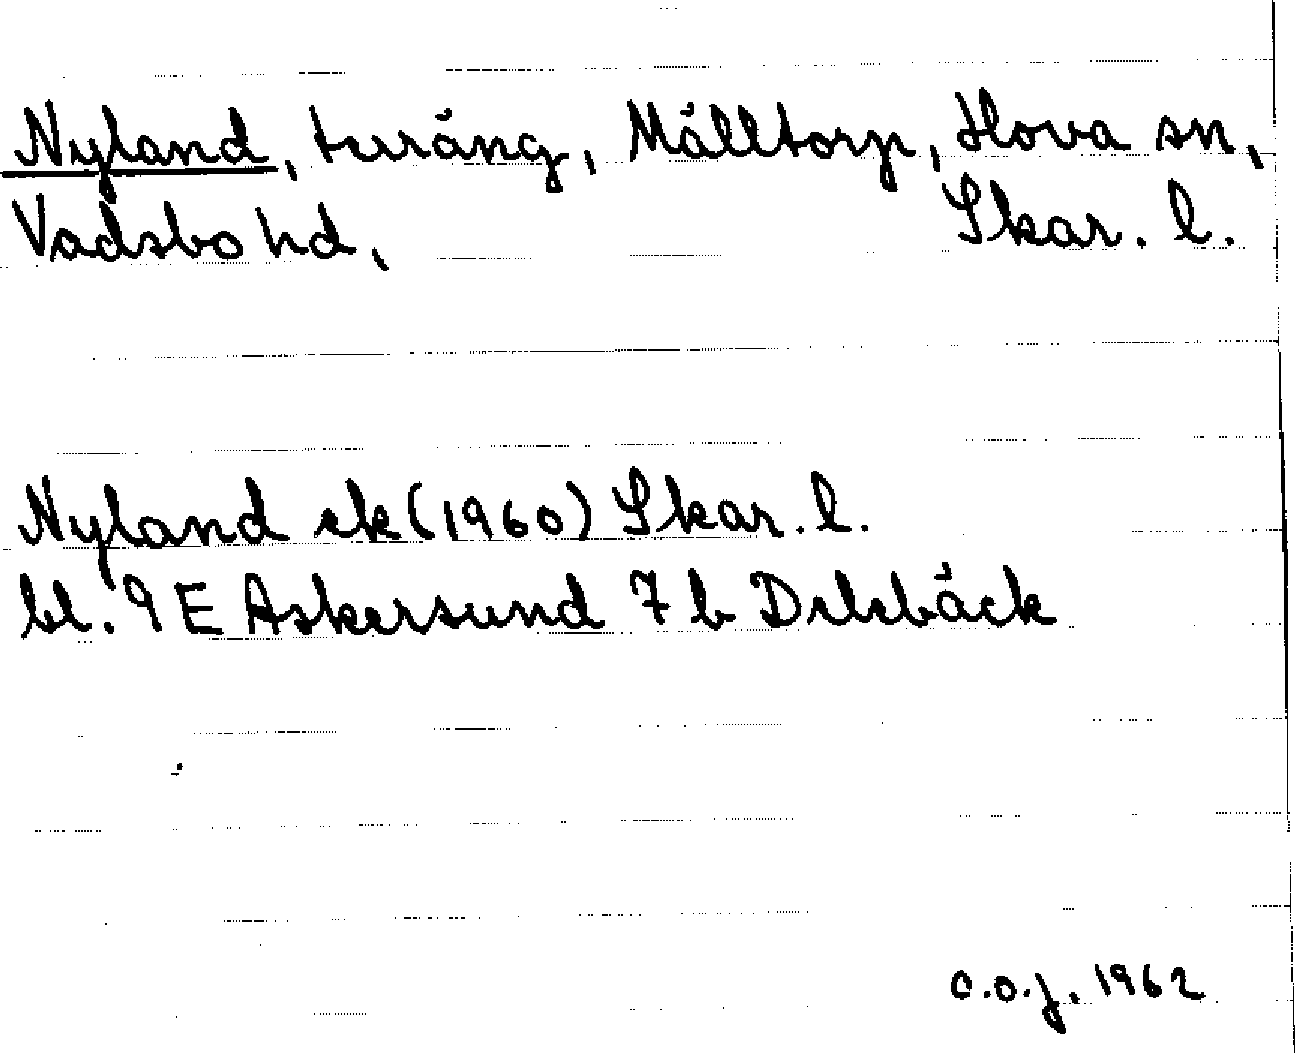 Nyland, terräng, Målltorp, Hova sn,
Vadsbo hd, Skar. l.
Nyland ek (1960) Skar. l.
bl. 9 E Askersund 7 b Delebäck
C.O.J. 1962